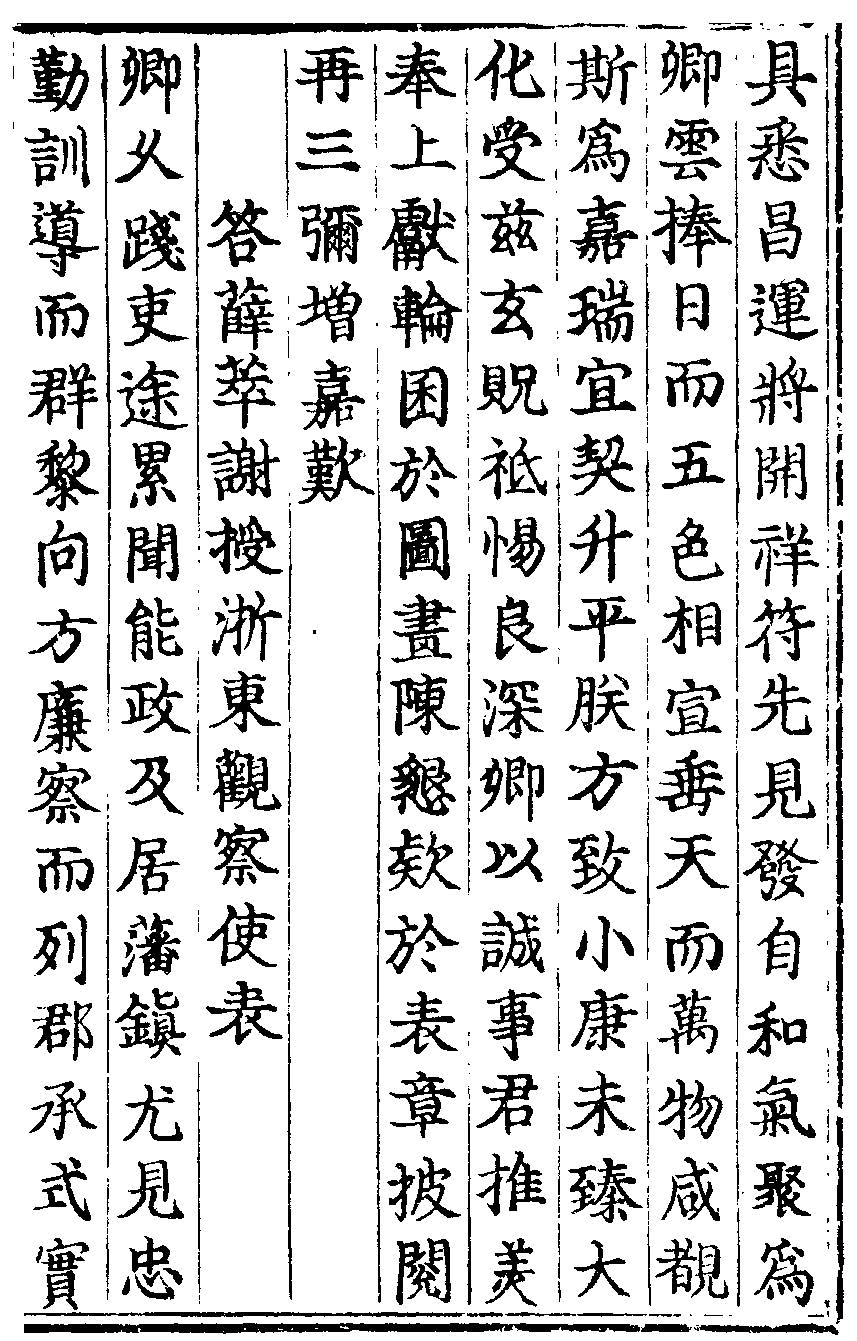 具悉昌運將開祥符先見發自和氣聚爲
卿雲捧日而五色相宣垂天而萬物咸覩
斯爲嘉瑞宜契升平朕方致小康未臻大
化受兹玄貺祗惕良深卿以誠事君推美
奉上獻輪囷於圖畫陳懇欵於表章披閱
再三彌增嘉歎
答薛苹謝授浙東觀察使表
卿乆踐吏途累聞能政及居藩鎭尤見忠
勤訓導而群黎向方廉察而列郡承式實